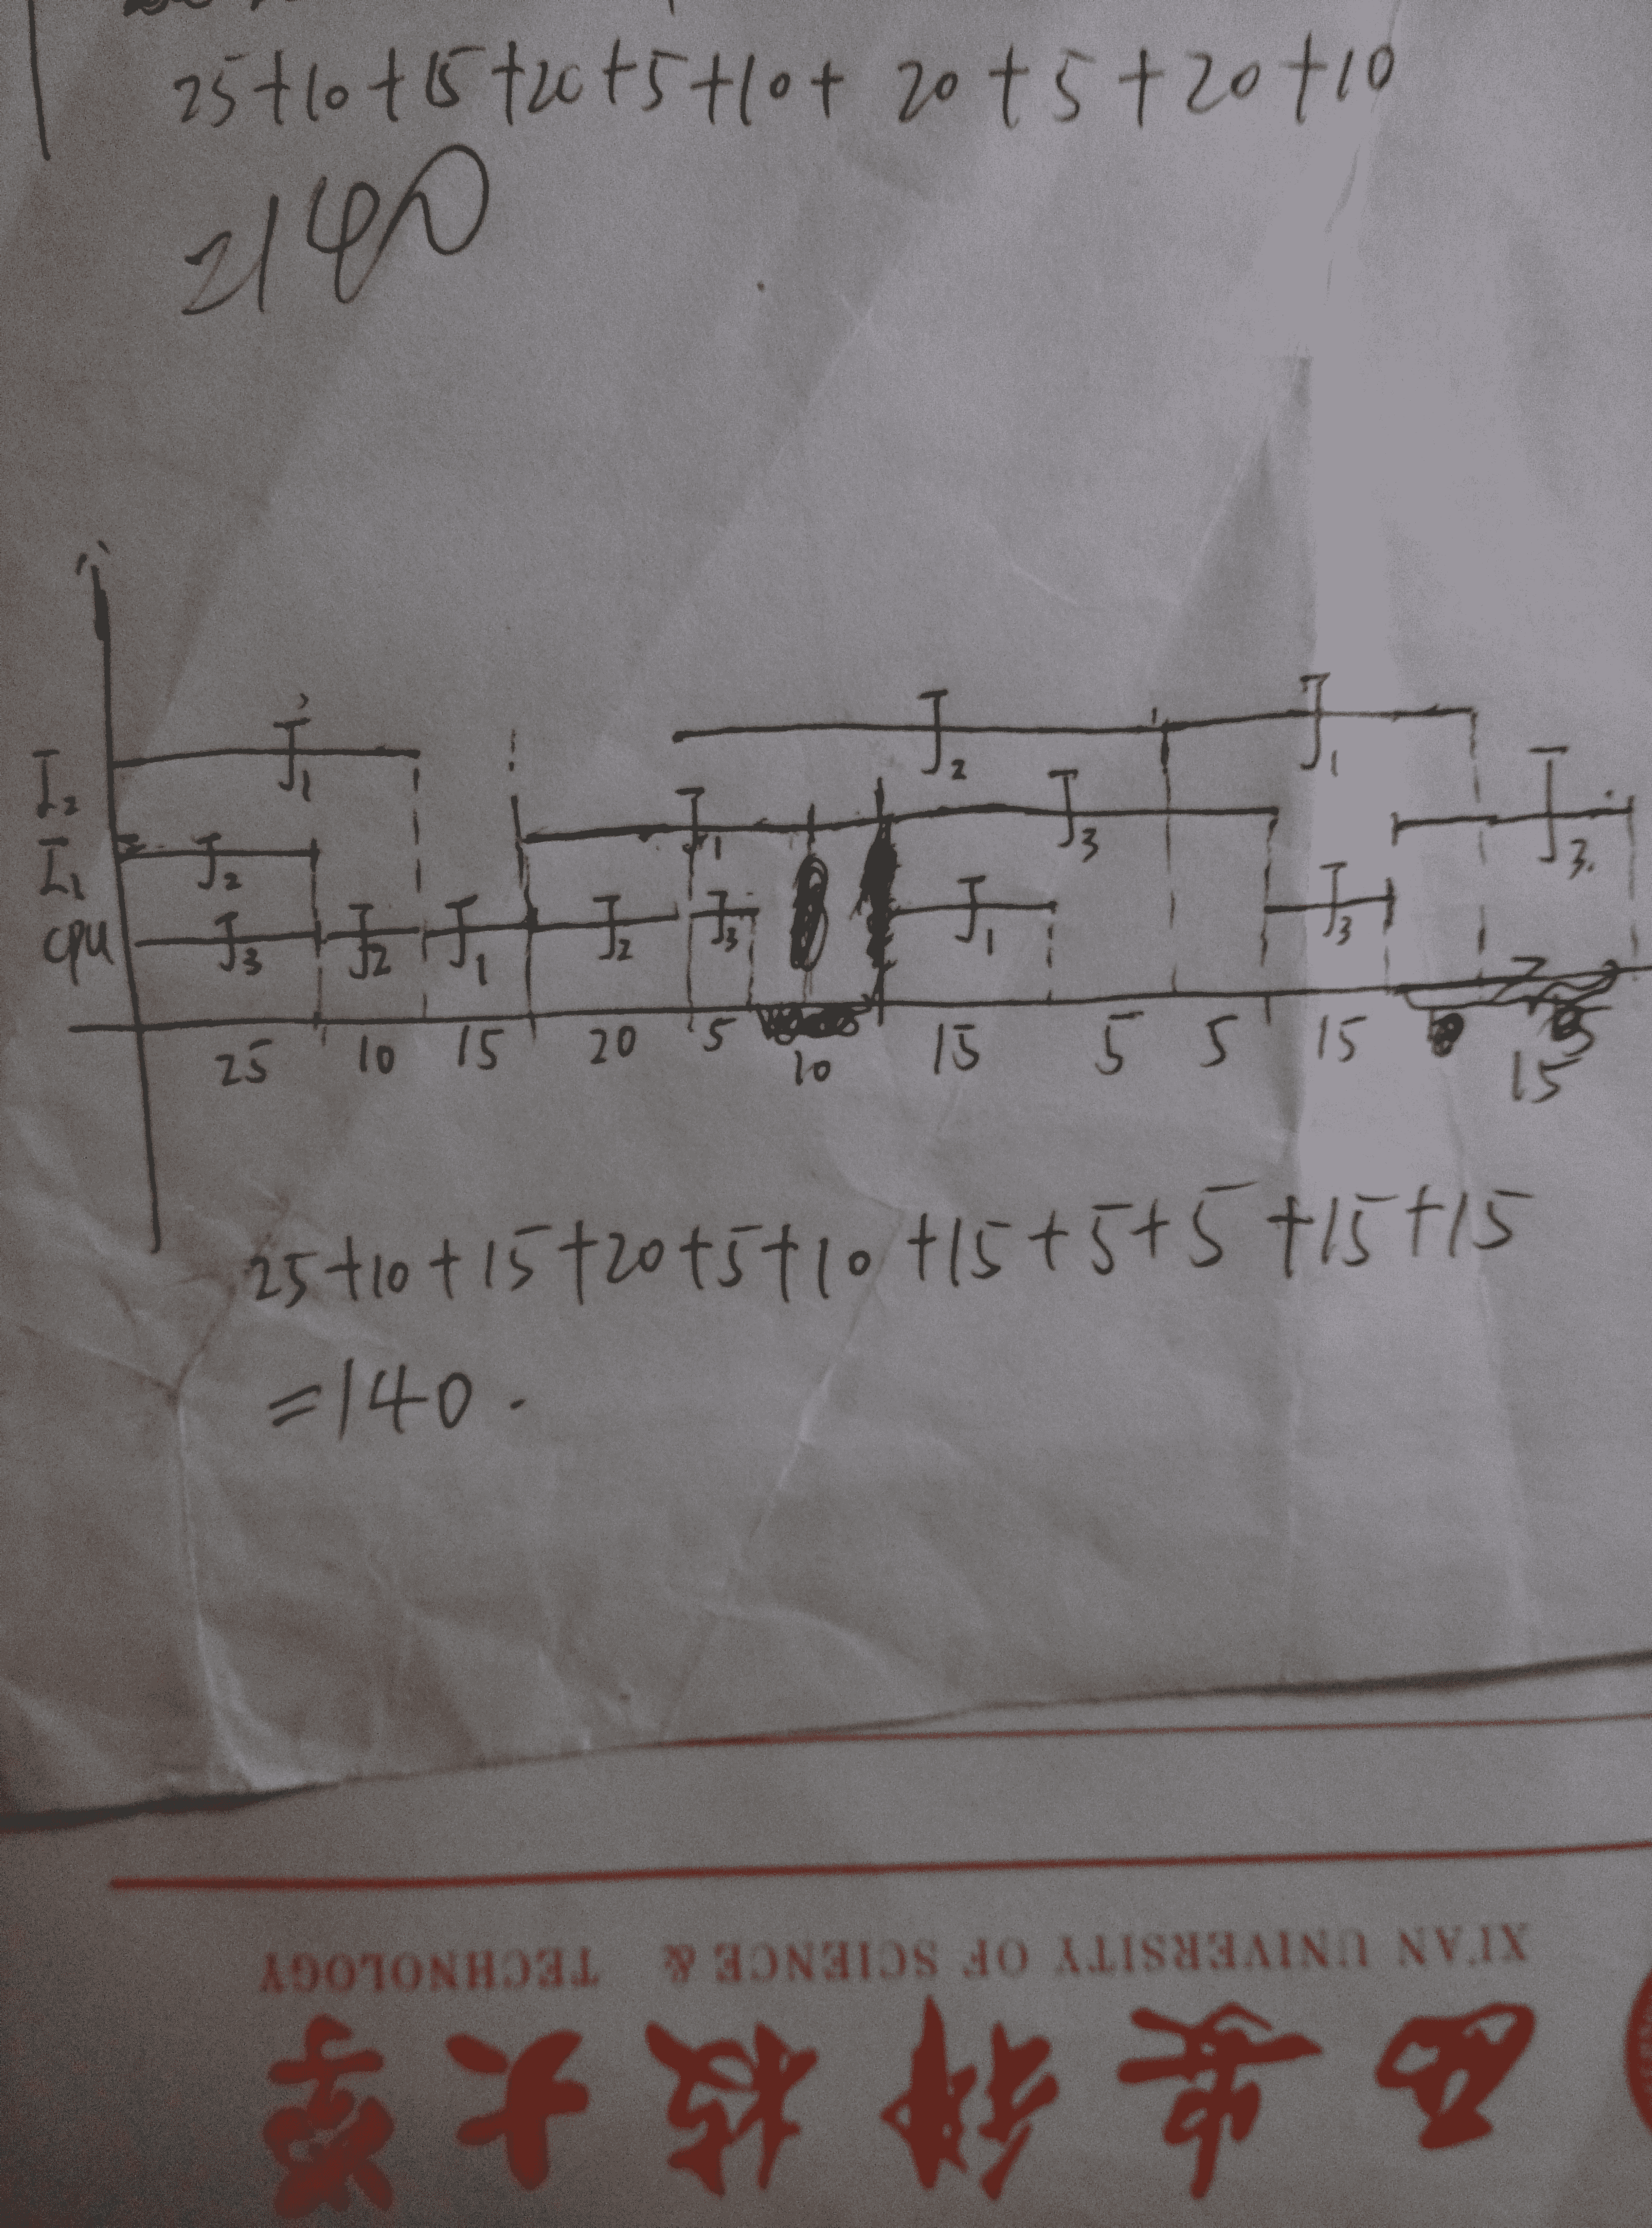 25+10+15+20+5+10+20+5+20+10
=140
J1 J2 J1
I2
J1 J3 J3.
I1 J2
CPU J3 J2 J1 J2 J3 J1 J3
25 10 15 20 5 10 15 5 5 15 15
25+10+15+20+5+10+15+5+5+15+15
=140.
西安科技大学
XI'AN UNIVERSITY OF SCIENCE & TECHNOLOGY